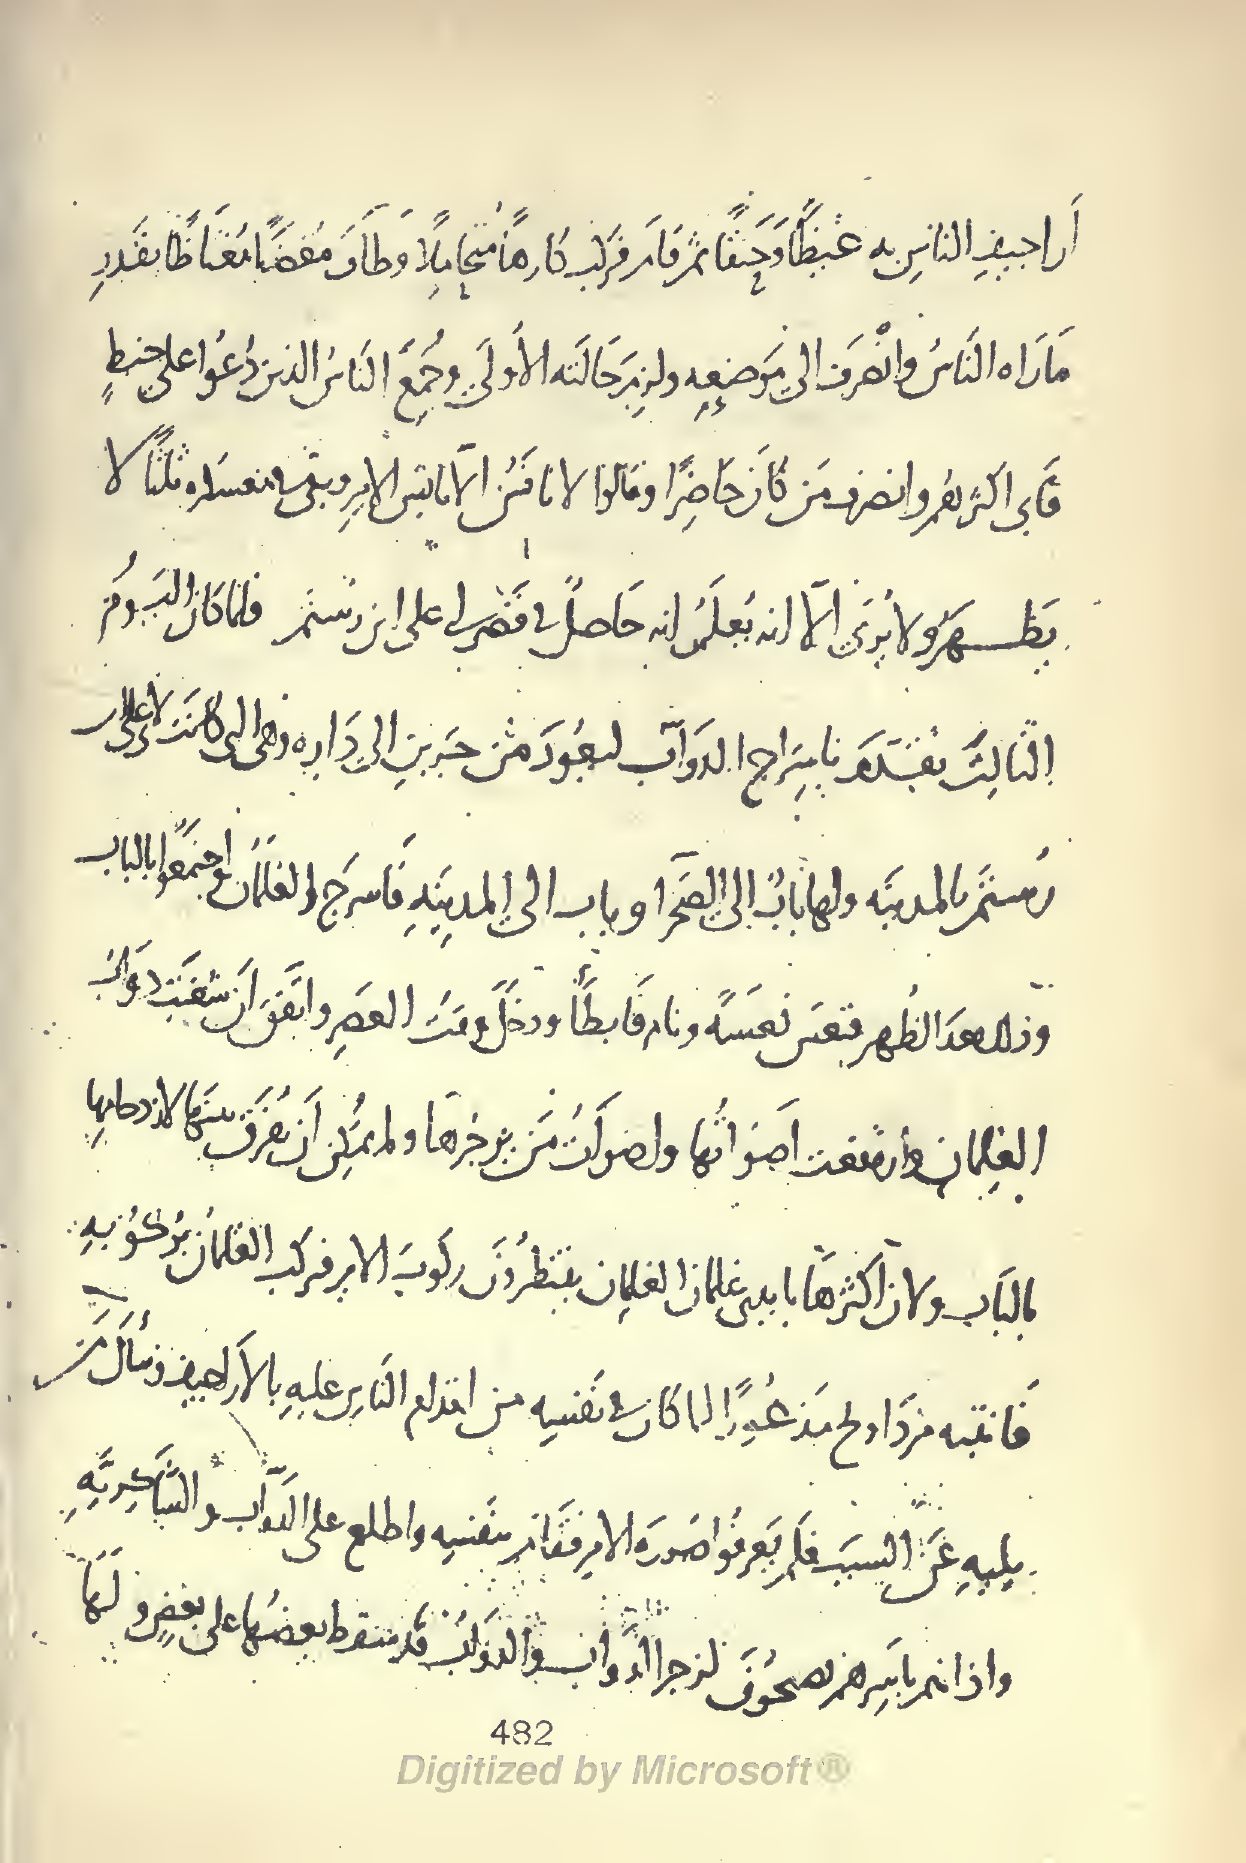 أراجيف الناس به غيظًا وَحَنقًا ثم قامَ فركب كارهًا مُتحامِلًا وطافَ مُغضَبًا مُغتاظًا بقدرِ
مارَاه الناسُ وانْصَرف الى مَوضِعِه ولزِمَ حَالَته الأولَى وجُمعَ الناسُ الذين دُعُوا على
فأبى اكثرهم وانصرف مَن كانَ حَاضِرًا وقالوا لا إلّا الامِير وبقى فى معسكره ثلثًا لا
يَظهرُ ولا يُرَى الّا انه يُعلَمُ انه حَاصلٌ فى على ابن رُستَم فلما كان اليَومُ
الثالِث تقدَّمَ باِسرَاج الدوَابّ ليعُودَ من الى دَارِه وهى التى كانت لأبى على ابن
رُستَم بالمدينَه ولها بابٌ الى الصّحَرا وباب الى المدينَهِ فاسرج والغلمَان اجتمعُوا بالباب
وذلك بعدَ الظُهر فنعَسَ نَعسَهً ونام فابطأَ ودخلَ وقتُ العصرِ واتفقَ انَ شغبَت دوَابُ
الغِلمان وارتفعت اصَواتُها ولصَوَات مَن يزجُرها ولم يُمكِن اَن يُفرَقَ بينَها لازدحامِها
بالبَابِ ولان اكثرَها بايدى غلمان الغلمِان ينتَظِروُنَ ركوبَ الامير فركب الغلمانُ بِرُكوُبهِ
فانتبه مَذعُورًا لما كان فى نَفسِه من اقدام النَاسِ عليهِ بالأراجيف وسُأل مَن
يليهِ عَن السَبب فلَم يَعرفُوا صُورَه الامر فقامَ بنَفسِه واطلع على الدوابّ والشاكِريّه
واذا هم باَسرهم يصيحُونَ لزجر الدوّاب والدوَابُ قد سقط بعضُها على بعضٍ و لَها
482
Digitized by Microsoft®